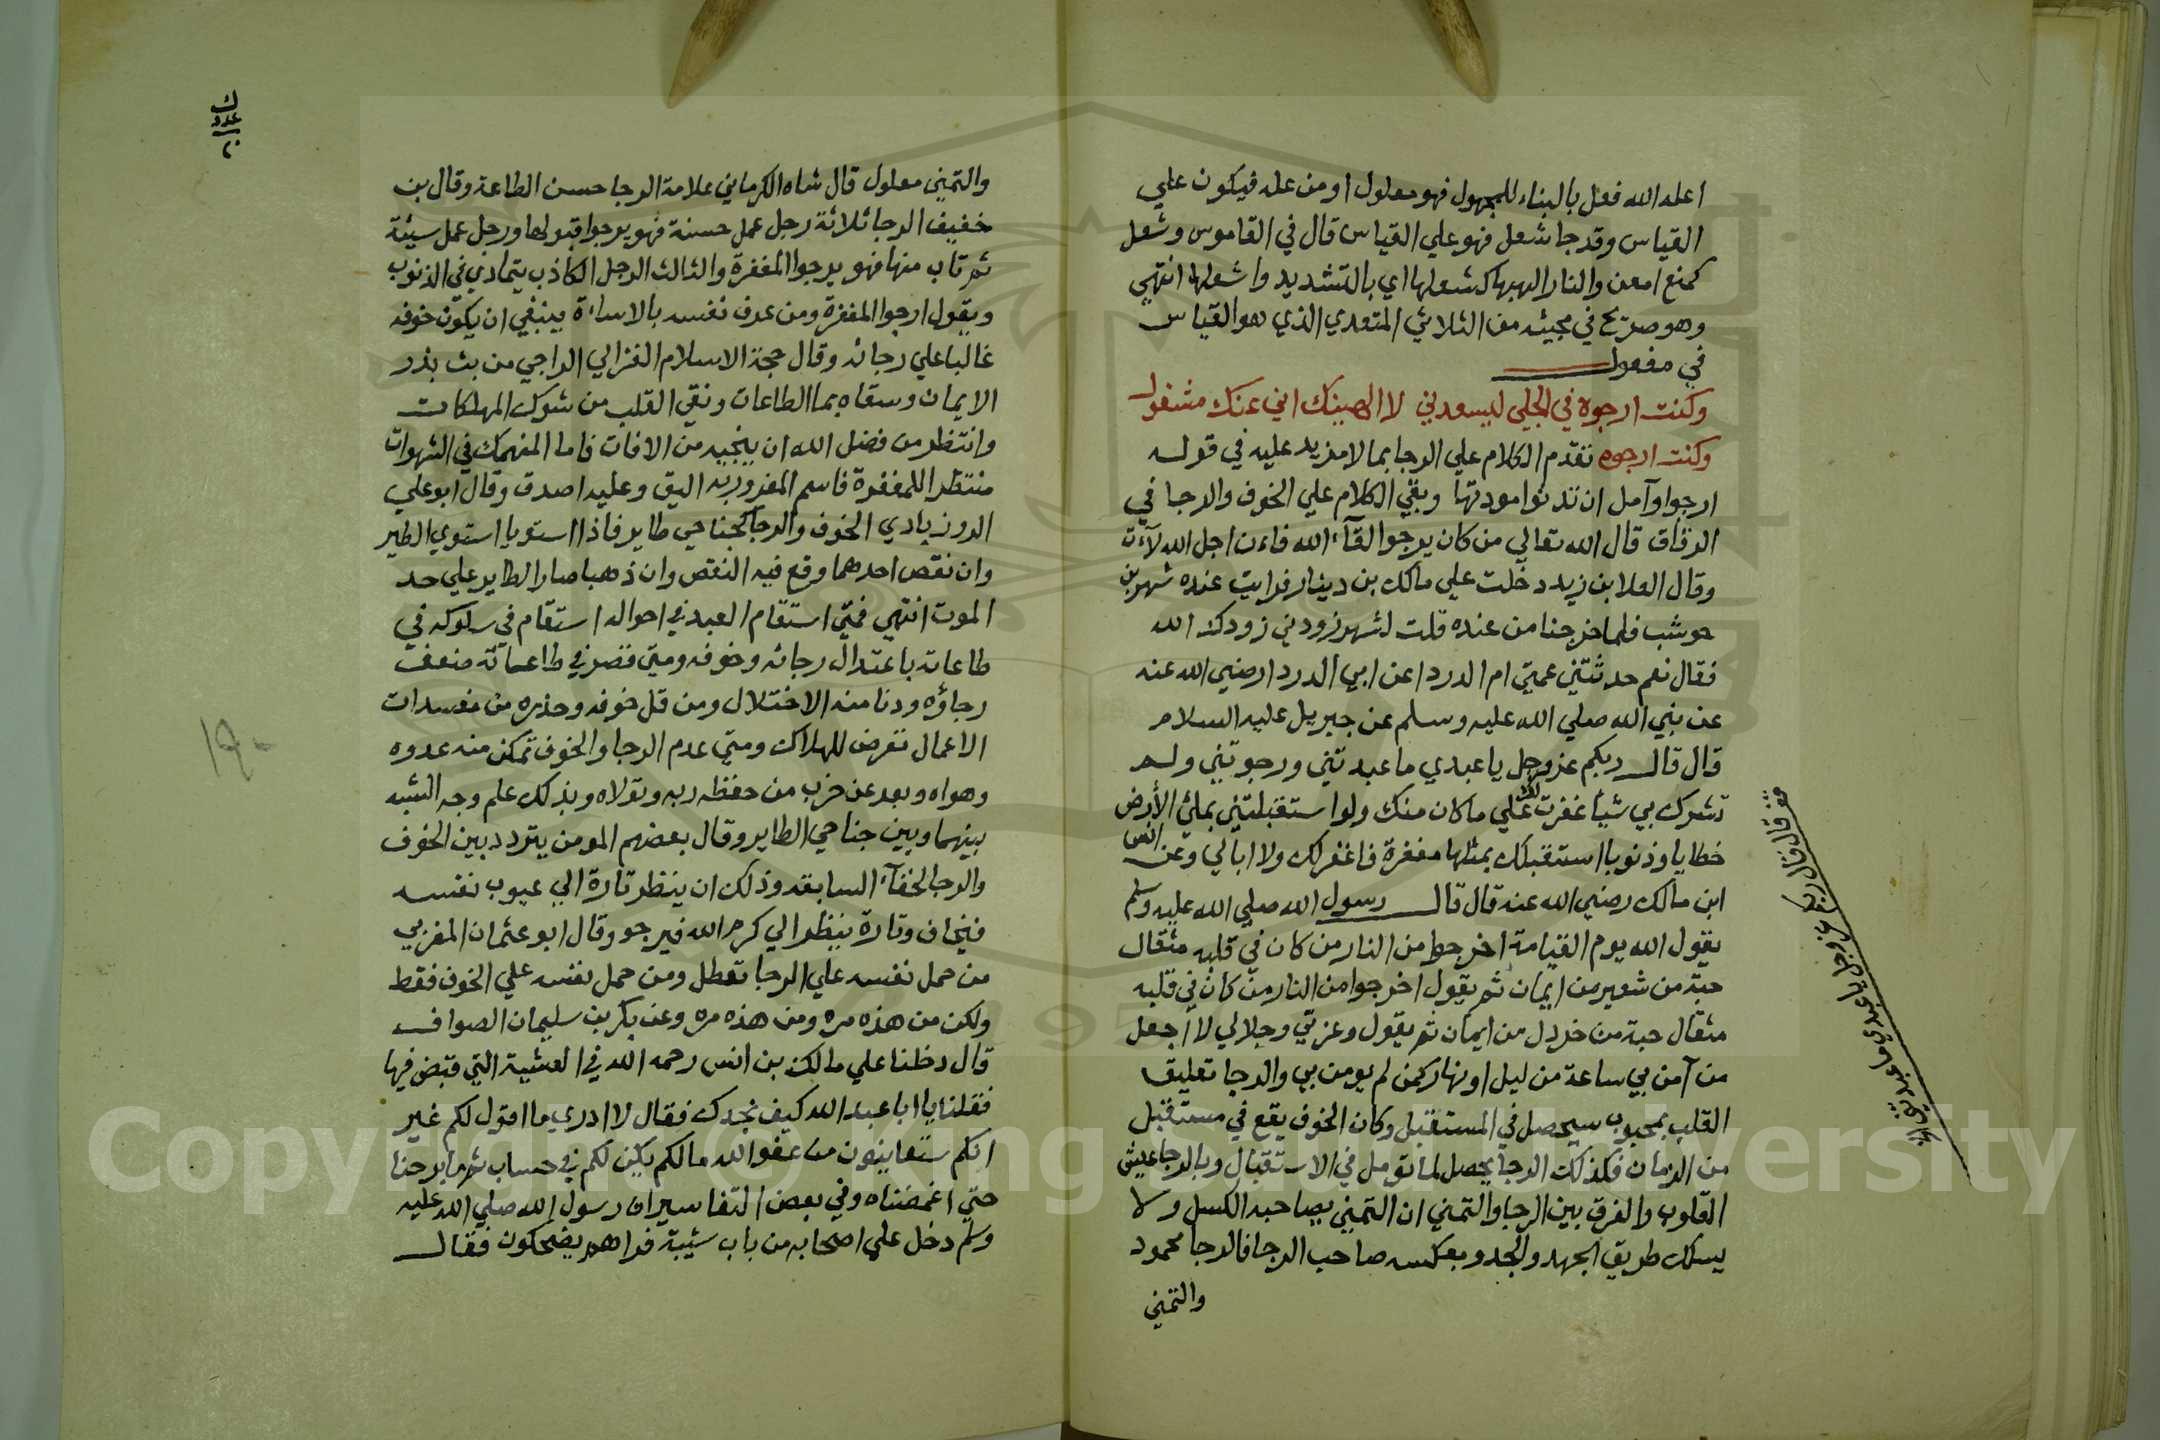 اعله الله فعل بالبناء للمجهول فهو معلول او من عله فيكون علي
القياس وقد جا شعل فهو علي القياس قال في القاموس وشعل
كمنع امعن والنار الهبها كشعلها اي بالتشديد واشعلها انتهي
وهو صريح في مجيئه من الثلاثي المتعدي الذي هو القياس
في مفعول
وكنت ارجوه في الجلي ليسعدني لا الهينك اني عنك مشغول
وكنت ارجوه تقدم الكلام علي الرجا بما لا مزيد عليه في قوله
ارجوا وآمل ان تدنوا مودتها وبقي الكلام علي الخوف والرجا في
الرقاق قال الله تعالي من كان يرجوا لقآء الله فان اجل الله لآت
وقال العلا بن زيد دخلت علي مالك بن دينار فرايت عنده شهر بن
حوشب فلما خرجنا من عنده قلت لشهر زودني زودك الله
فقال نعم حدثتني عمتي ام الدردا عن ابي الدردا رضي الله عنه
عن نبي الله صلي الله عليه وسلم عن جبريل عليه السلام
قال قال ربكم عز وجل يا عبدي ما عبدتني ورجوتني ولم
تشرك بي شيأ غفرت لك علي ما كان منك ولو استقبلتني بملئ الأرض
خطايا وذنوبا استقبلك بمثلها مغفرة فاغفر لك ولا ابالي وعن انس
ابن مالك رضي الله عنه قال قال رسول الله صلي الله عليه وسلم
يقول الله يوم القيامة اخرجوا من النار من كان في قلبه مثقال
حبة من شعير من ايمان ثم يقول اخرجوا من النار من كان في قلبه
مثقال حبة من خردل من ايمان ثم يقول وعزتي وجلالي لا اجعل
من آمن بي ساعة من ليل او نهار كمن لم يومن بي والرجا تعليق
القلب بمحبوب سيحصل في المستقبل وكان الخوف يقع في مستقبل
من الزمان فكذلك الرجا يحصل لما تومل في الاستقبال وبالرجا عيش
القلوب والفرق بين الرجا والتمني ان التمني يصاحبه الكسل ولا
يسلك طريق الجهد والجد وبعكسه صاحب الرجا فالرجا محمود
والتمني
قال فقال ربكم عز وجل يا عبدي ما عبدتني
والتمني معلول قال شاه الكرماني علامة الرجا حسن الطاعة وقال بن
خفيف الرجا ثلاثة رجل عمل حسنة فهو يرجوا قبولها ورجل عمل سيئة
ثم تاب منها فهو يرجوا المغفرة والثالث الرجل الكاذب يتمادي في الذنوب
ويقول ارجوا المغفرة ومن عرف نفسه بالاساءة ينبغي ان يكون خوفه
غالبا علي رجائه وقال حجة الاسلام الغزالي الراجي من بث بذر
الايمان وسقاه بما الطاعات ونقي القلب من شوك المهلكات
وانتظر من فضل الله ان ينجيه من الافات فاما المنهمك في الشهوات
منتظرا للمغفرة فاسم المغرور به اليق وعليه اصدق وقال ابو علي
الروزبادي الخوف والرجا كجناحي طاير فاذا استويا استوي الطير
وان نقص احدهما وقع فيه النقص وان ذهبا صار الطاير علي حد
الموت انتهي فمتي استقام العبد في احواله استقام في سلوكه في
طاعاته باعتدال رجائه وخوفه ومتي قصر في طاعاته ضعف
رجاؤه ودنا منه الاختلال ومن قل خوفه وحذره من مفسدات
الاعمال تعرض للهلاك ومتي عدم الرجا والخوف تمكن منه عدوه
وهواه وبعد عن حزب من حفظه ربه وتولاه وبذلك علم وجه الشبه
بينهما وبين جناحي الطاير وقال بعضهم المومن يتردد بين الخوف
والرجا لخفآء السابقه وذلك ان ينظر تارة الي عيوب نفسه
فيخاف وتارة ينظر الي كرم الله فيرجو وقال ابو عثمان المغربي
من حمل نفسه علي الرجا تعطل ومن حمل نفسه علي الخوف فقط
ولكن من هذه مره ومن هذه مره وعن بكر بن سليمان الصواف
قال دخلنا علي مالك بن انس رحمه الله في العشية التي قبض فيها
فقلنا يا ابا عبد الله كيف نجدك فقال لا ادري ما اقول لكم غير
انكم ستعاينون من عفو الله ما لكم يكن لكم في حساب ثم ما برحنا
حتي اغمضناه وفي بعض التفاسير ان رسول الله صلي الله عليه
وسلم دخل علي اصحابه من باب شيبة فراهم يضحكون فقال
١٩٠
Copyright © King Saud University